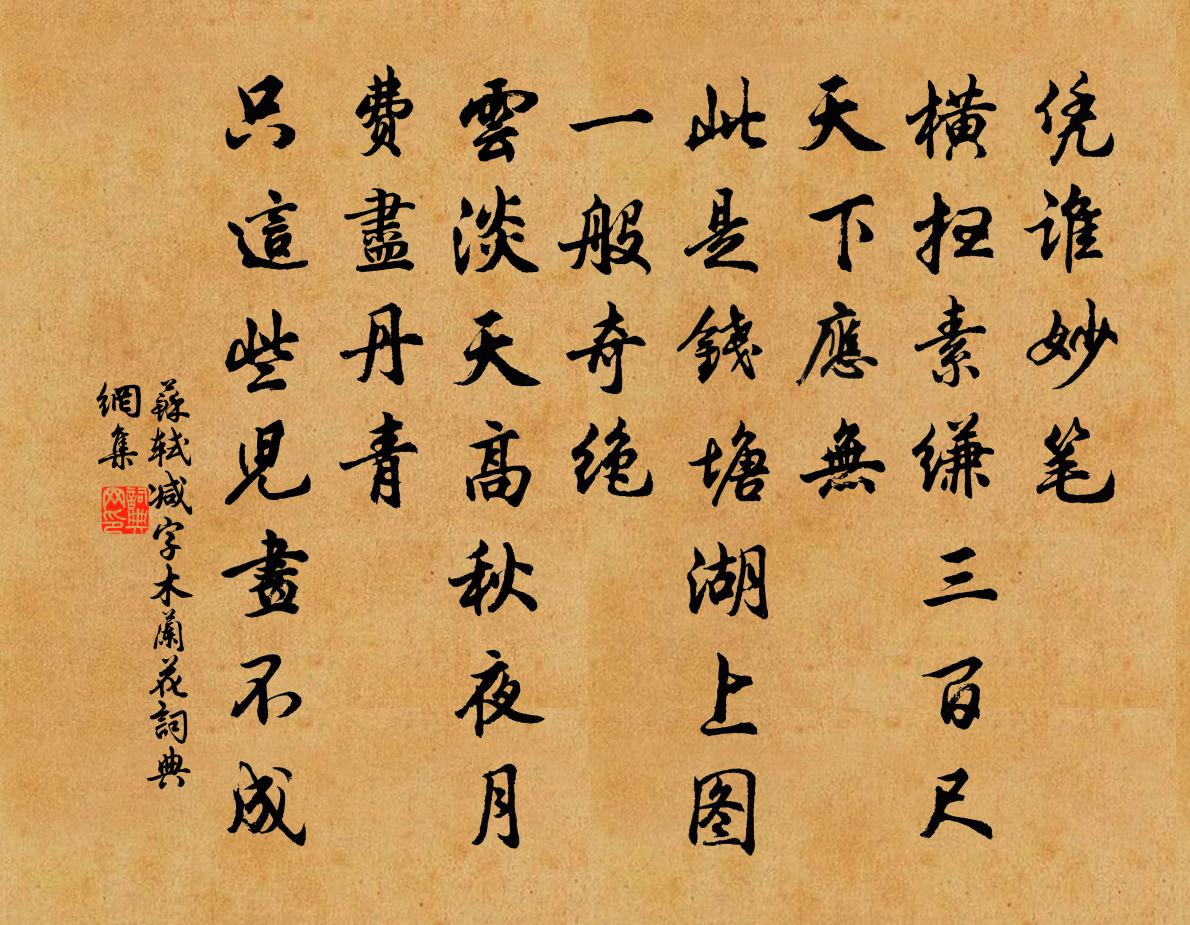 凭谁妙笔
横扫素缣三百尺
天下應無
此是錢塘湖上图
一般奇绝
雲淡天高秋夜月
費盡丹青
只這些兒畫不成
蘇軾减字木蘭花詞典
網集
詞典
网印